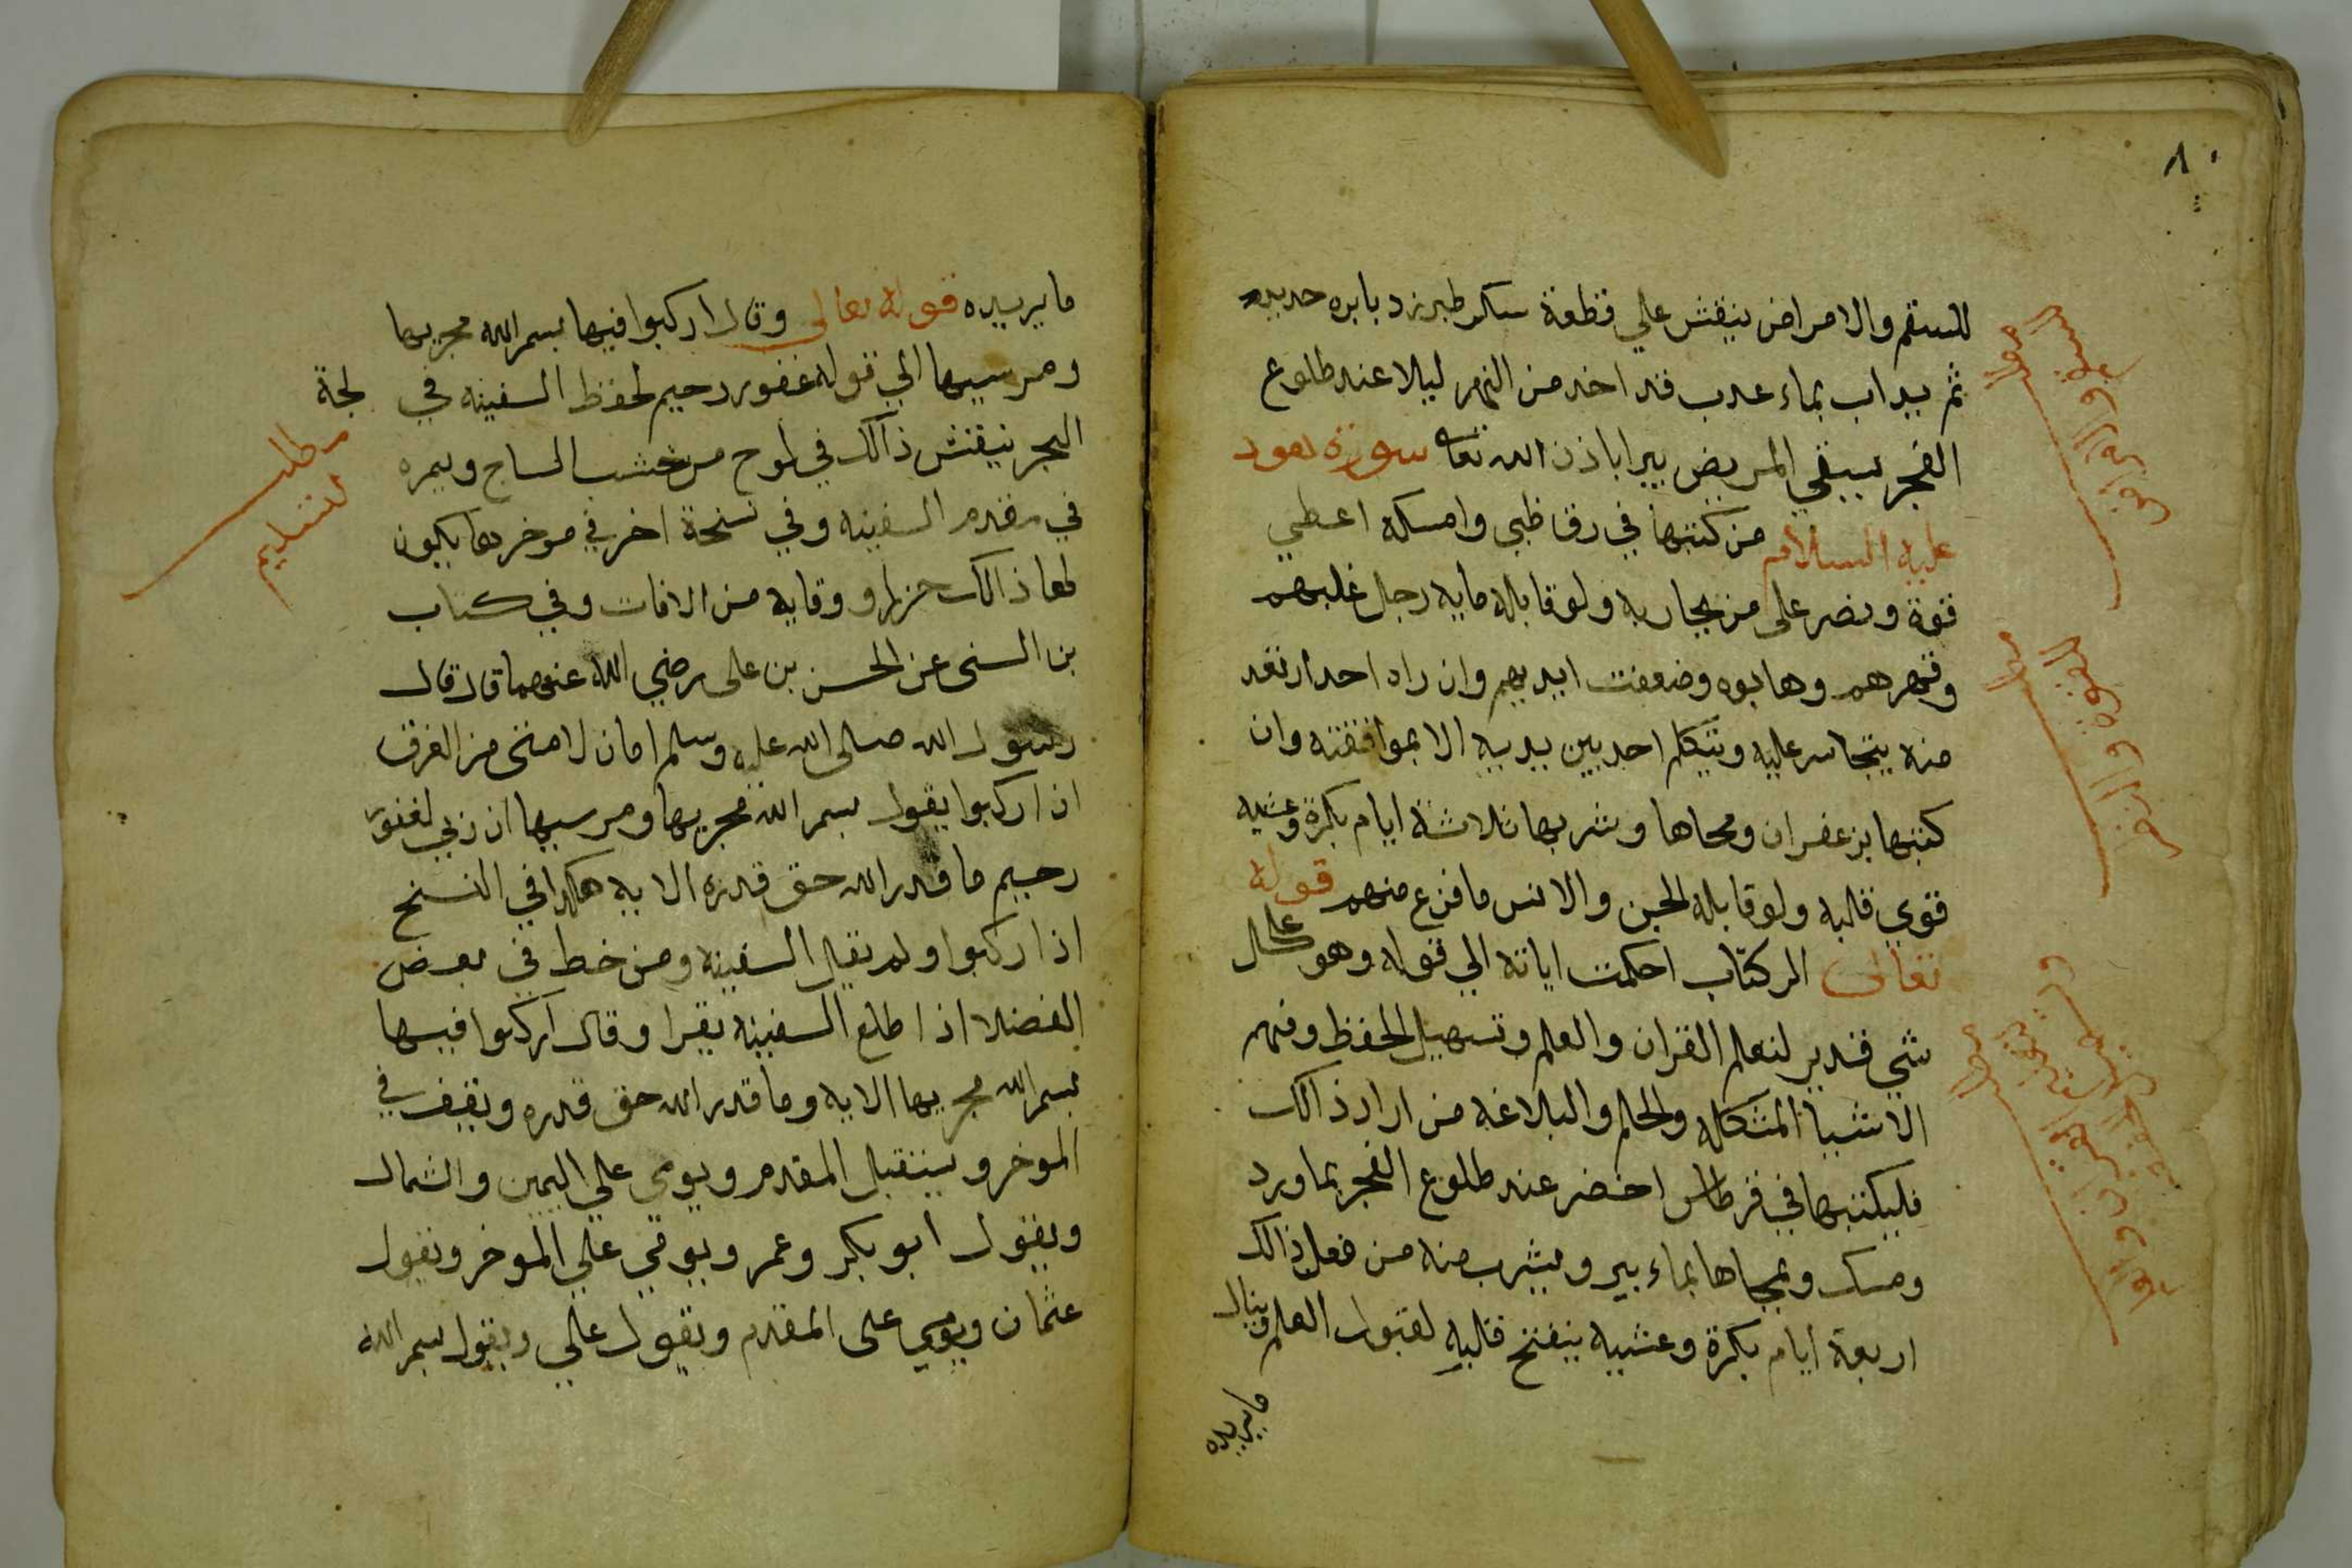 ٨٠
للسقم والامراض ينقش علي قطعة سكر طبرزد بابره حديد
ثم يداب بماء عدب قد اخد من النهر ليلا عند طلوع
الفجر يسقي المريض يبرا باذن الله تعا سورة هود
عليه السلام من كتبها في رق ظبي وامسكه اعطي
قوة ونصر على من يحاربه ولو قابله مايه رجل غلبهم
وقهرهم وهابوه وضعفت ايديهم وان راه احد ارتعد
منه يتجاسر عليه ويتكلم احد بين يديه الا بموافقته وان
كتبها بزعفران ومحاها وشربها ثلاثة ايام بكرة وعشيه
قوي قلبه ولو قابله الجن والانس ما فزع منهم قوله
تعالى الر كتاب احكمت اياته الي قوله وهو على كل
شي قدير لتعلم القران والعلم وتسهيل الحفظ وفهم
الاشيا المشكله والحلم والبلاغه من اراد ذالك
فليكتبها في قرطاس اخضر عند طلوع الفجر بماورد
ومسك ويمحاها بماء بير ويشرب منه من فعل ذالك
اربعة ايام بكرة وعشيه ينفتح قلبه لقبول العلم وينال
ما يريده
مطلب
للسقم والامراض
مطلب
للقوة والنصر
مطلب
لتعلم القران والعلم
ما يريده قوله تعالى وقال اركبوا فيها بسم الله مجريها
ومرسيها الي قوله غفور رحيم لحفظ السفينه في لجة
البحر ينقش ذالك في لوح من خشب الساج ويسمره
في مقدم السفينه وفي نسخة اخر في موخرها يكون
لها ذالك حرزا ووقاية من الافات وفي كتاب
بن السنى عن الحسن بن على رضي الله عنهما قال قال
رسول الله صلى الله عليه وسلم امان لامتى من الغرق
اذا ركبوا يقول بسم الله مجريها ومرسيها ان ربي لغفور
رحيم ما قدر الله حق قدره الايه هكذا في النسخ
اذا ركبوا ولم يقل السفينه ومن خط في بعض
الفضلا اذا طلع السفينه يقرا وقال اركبوا فيها
بسم الله مجريها الايه وما قدر الله حق قدره ويقف في
الموخر ويستقبل المقدم ويومي علي اليمين والشمال
ويقول ابو بكر وعمر ويومي علي الموخر ويقول
عثمان ويومي على المقدم ويقول علي ويقول بسم الله
مطلب